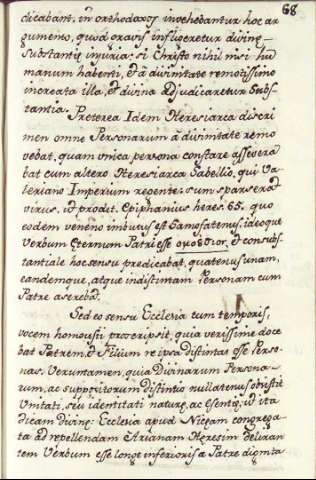 68
dicabant, in orthodoxos invehebantur hoc ar
gumento, quod gravis infligeretur divinę
Substantię injuria; si Christo nihil nisi hu
manum habenti, et à divinitate remotissimo
increata illa, et divina adjudicaretur Subs-
tantia.
Preterea Idem Heresiarca discri
men omne Personarum à divinitate remo
vebat, quam unica persona constare assevera
bat cum altero Heresiarca Sabellio, qui Va-
leriano Imperium regente suum sparserat
virus, ut prodit Epiphanius heres. 65. quo
eodem veneno imbutus est Samosatenus, ideoque
Verbum Eternum Patri esse et consubs-
tantiale hoc sensu predicabat, quatenus unam,
eandemque, atque indistinctam Personam cum
Patre asereba.
Sed eo sensu Ecclesia eum temporis,
vocem homousii proscripsit, quia verissime doce
bat Patrem, et Filium re ipsa distinctas esse Perso-
nas. Verumtamen, quia Divinarum Persona-
rum, ac suppositorum distintio nullatenus obsistit
Unitati, seu identitati naturę, ac esentię, ut ita
dicam divinę: Ecclesia apud Niceam congrega-
ta ad repellendam Arianam Heresim deliran
tem Verbum esse longe inferioris a Patre dignita-